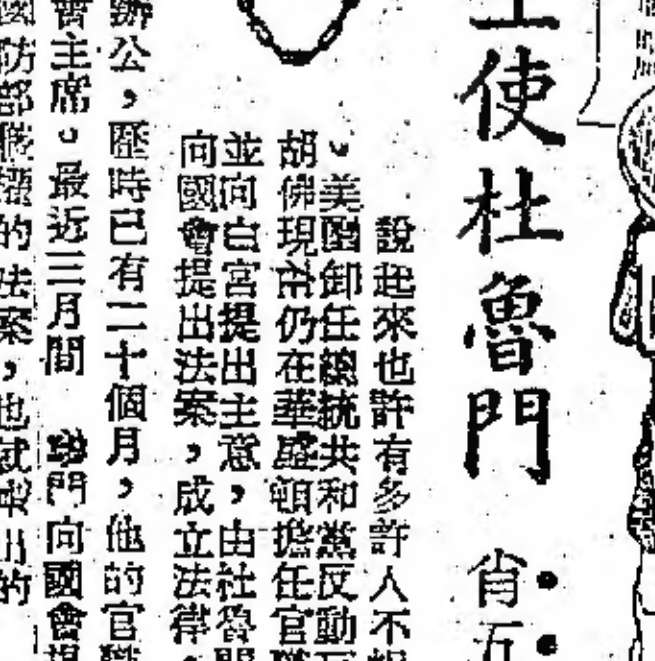 使杜魯門
肖
說起來也許有多許人不
。美國卸任總統共和黨反動
胡佛現尚仍在華盛頓擔任官職
並向白宮提出主意,由杜魯門
向國會提出法案,成立法律。
辦公,歷時已有二十個月,他的官職
會主席。最近三月間 杜門向國會提
國防部 的法案,也 出的